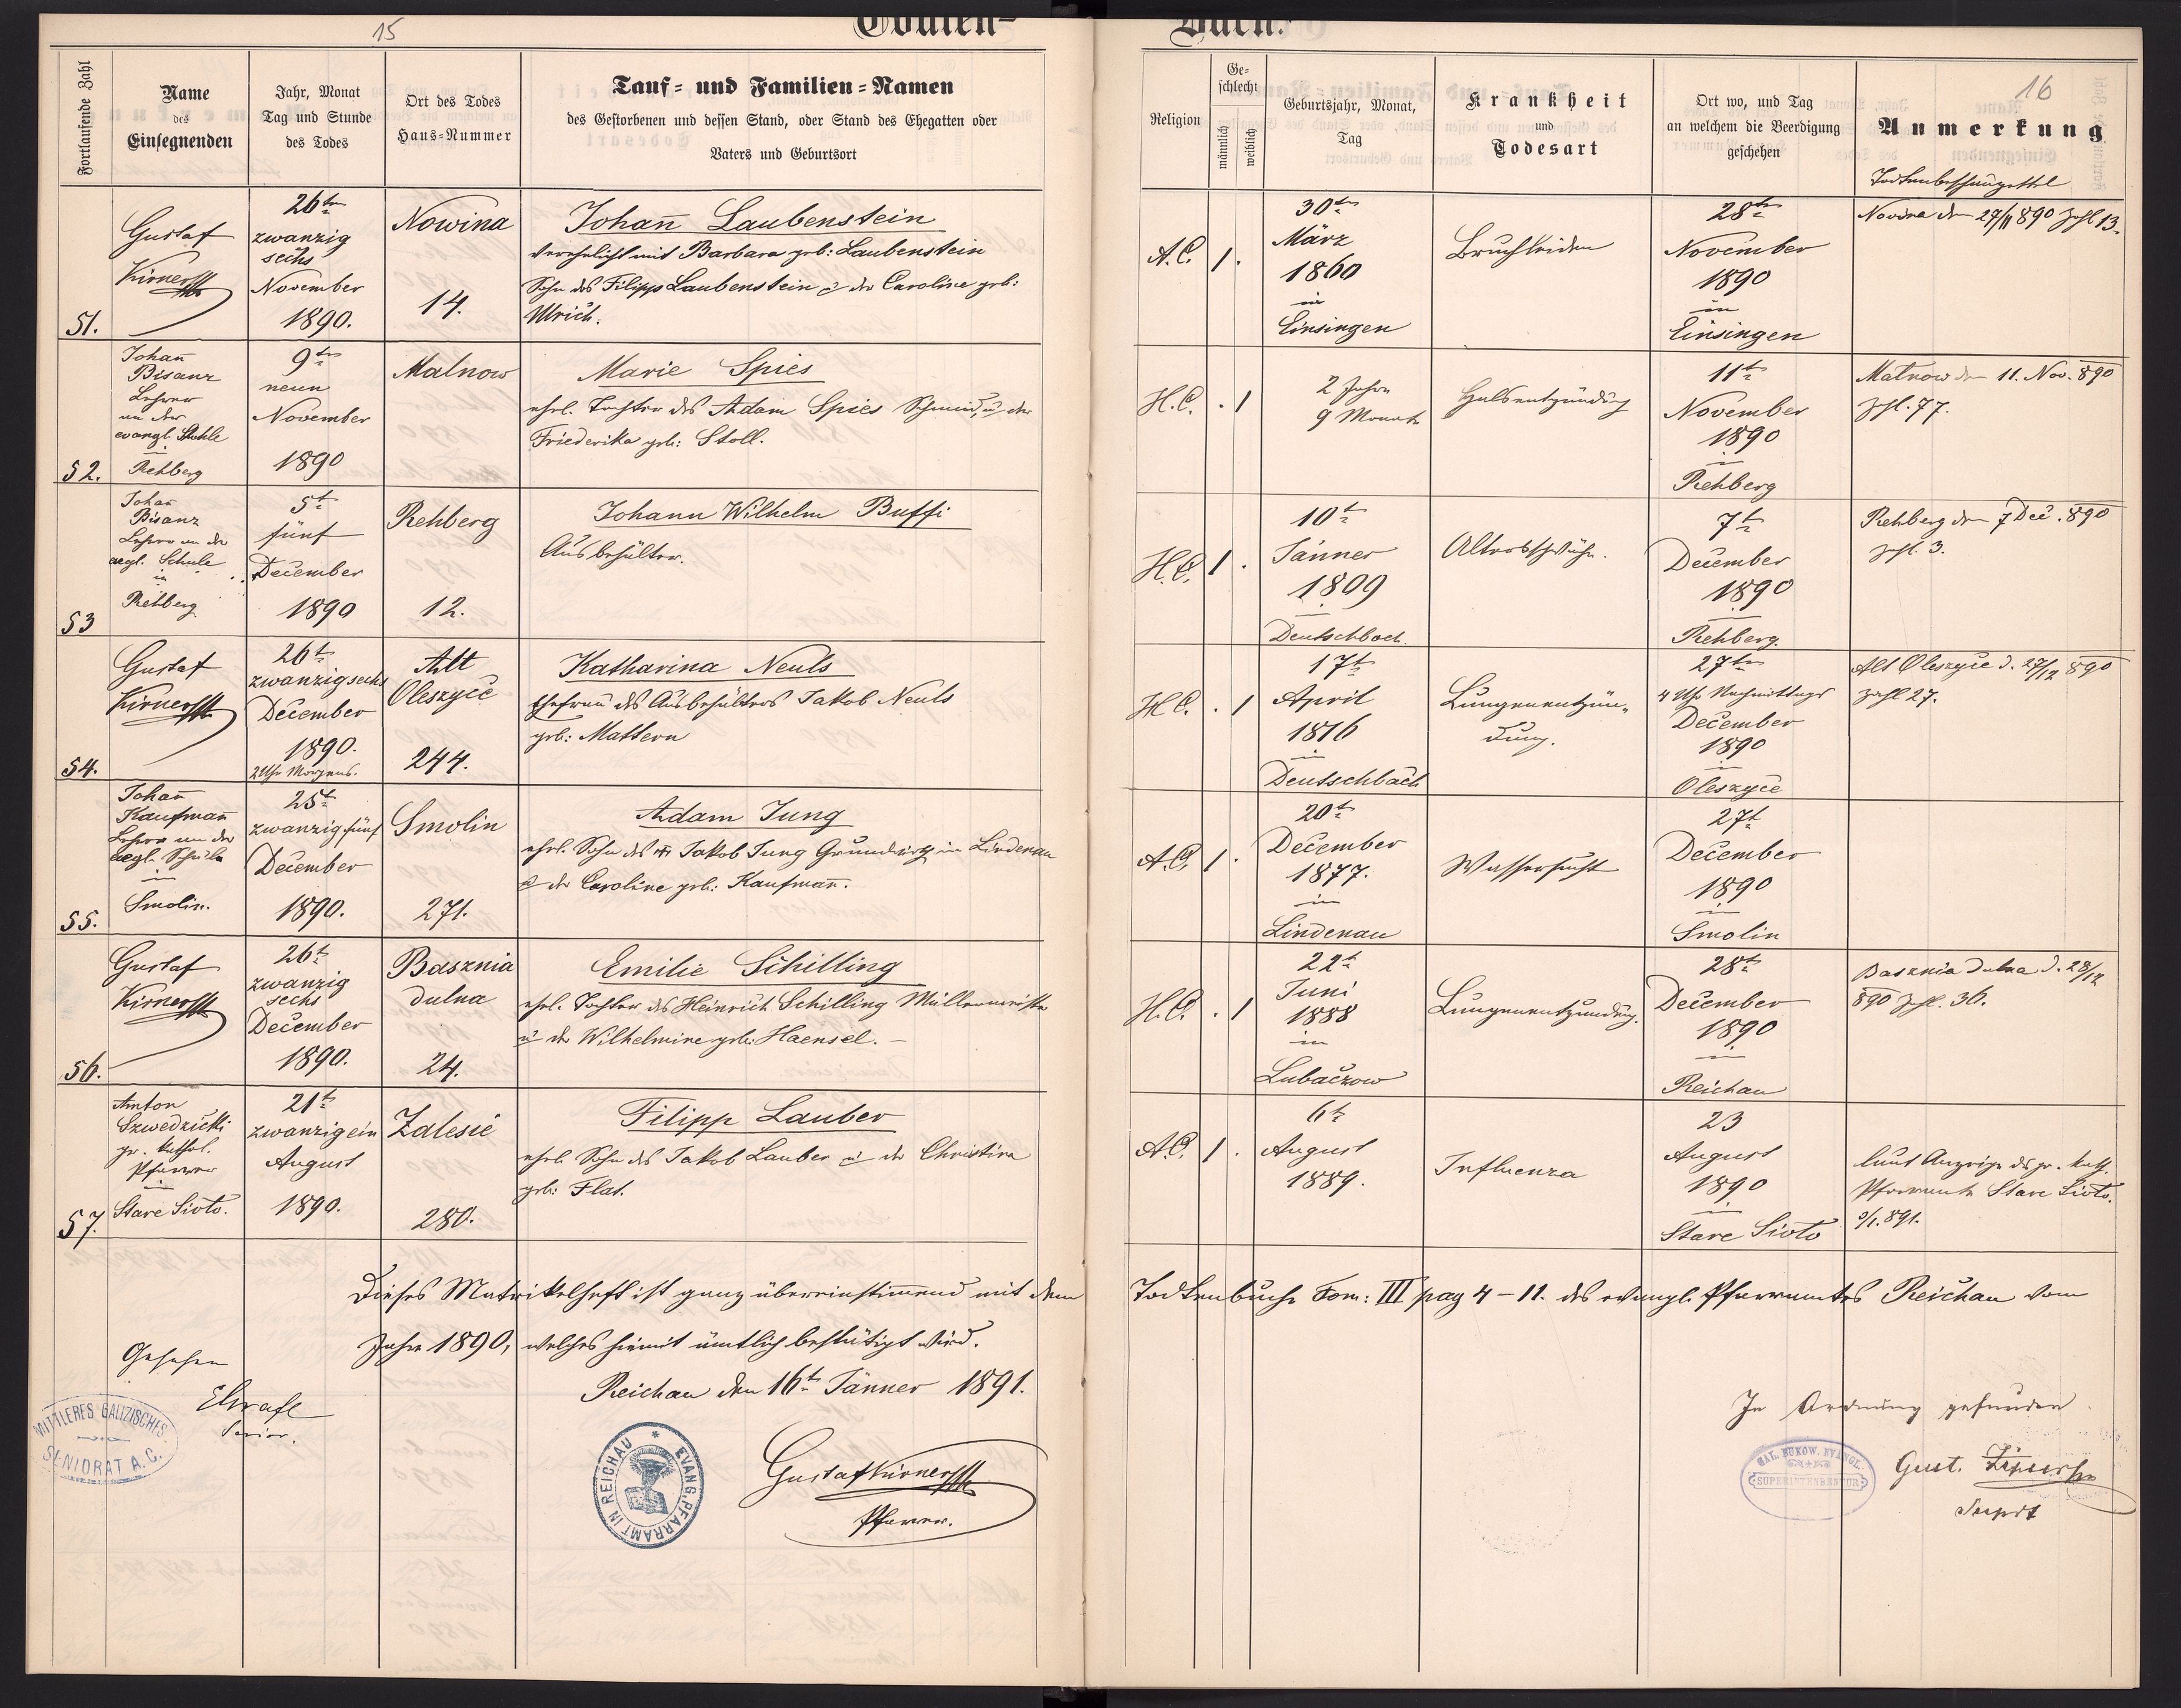 15
Todten-
Buch.
16
Fortlaufende Zahl
Name
des
Einsegnenden
Jahr, Monat
Tag und Stunde
des Todes
Ort des Todes
Haus-Nummer
Tauf- und Familien-Namen
des Gestorbenen und dessen Stand, oder Stand des Ehegatten oder
Vaters und Geburtsort
Religion
Ge-
schlecht
männlich
weiblich
Geburtsjahr, Monat,
Tag
Krankheit
und
Todesart
Ort wo, und Tag
an welchem die Beerdigung
geschehen
Anmerkung
51.
Gustaf
26ten
zwanzig
sechs
November
1890.
Nowina
14.
Johañ Laubenstein
verehelicht mit Barbara geb: Laubenstein
Sohn des Filipp Laubenstein u der Caroline geb:
Ulrich.
A.C.
1.
30ten
März
1860
in
Einsingen
Bruchleiden
28ten
November
1890
in
Einsingen
Novina den 27/11 890 Zahl 13.
52.
Johañ
Bisanz
Lehrer
an der
evangl. Schule
in
Rehberg
9ten
neun
November
1890
Malnow
Marie Spies
ehel. Tochter des Adam Spies Schmied, u der
Friederika geb: Stoll.
H.C.
. 1
2 Jahre
9 Monate
Halsentzündung
11te
November
1890
in
Rehberg
Malnow den 11. Nov. 890
Zahl. 77.
53
Johañ
Bisanz
Lehrer an der
aegl. Schule
in
Rehberg
5t
fünf
December
1890
Rehberg
12.
Johann Wilhelm Buffi
Ausbehälter.
H.C.
1 .
10t
Jänner
1809
Deutschbach.
Altersschwäche.
7t
December
1890
Rehberg.
Rehberg den 7 Dec. 890
Zahl. 3.
54.
Gustaf
26t
zwanzigsechs
December
1890.
2 Uhr Morgens.
Alt
Oleszyce
244.
Katharina Neuls
Ehefrau des Ausbehälters Jakob Neuls
geb: Mattern
H.C.
. 1
17t
April
1816
in
Deutschbach
Lungenentzün-
dung.
27ten
4 Uhr Nachmittags
December
1890
in
Oleszyce
Alt Oleszyce d. 27/12 890
Zahl 27.
55.
Johañ
Kaufmañ
Lehrer an der
aegl. Schule
in
Smolin.
25t
zwanzigfünf
December
1890.
Smolin
271.
Adam Jung
ehel. Sohn des Jakob Jung Grundwirth in Lindenau
u der Caroline geb: Kaufmañ.
A.C.
1 .
20t
December
1877.
in
Lindenau
Wassersucht
27t
December
1890
in
Smolin
56.
Gustaf
26t
zwanzig
sechs
December
1890.
Basznia
dulna
24.
Emilie Schilling
ehel. Tochter des Heinrich Schilling Müllermeister
u der Wilhelmine geb: Haensel. –
H.C.
. 1
22t
Juni
1888
in
Lubaczow
Lungenentzündung.
28t
December
1890
in
Reichau
Basznia dulna d. 28/12
890 Zahl. 36.
57.
Anton
Szwedzicki
gr. kathol.
Pfarrer
in
Stare Siolo.
21t
zwanzigein
August
1890.
Zalesie
280.
Filipp Lauber
ehel. Sohn des Jakob Lauber u der Christina
geb: Flat.
A.C.
1 .
6t
August
1889.
Influenza
23
August
1890
in
Stare Siolo
laut Anzeige des gr. kath.
Pfarramts Stare Siolo.
Dieses Matrikelheft ist ganz übereinstimmend mit dem Todtenbuche Tom: III pag 4 – 11. des evangl. Pfarramtes Reichau vom
Jahre 1890, welches hiemit ämtlich bestätigt wird.
Reichau den 16t Jänner 1891.
Gesehen
Senior.
MITTLERES GALIZISCHES
SENIORAT A. C.
EVANG. PFARRAMT IN REICHAU
Pfarrer.
In Ordnung gefunden.
GAL. BUKOW. EVANGL.
SUPERINTENDENTUR
Gust.
Supdt